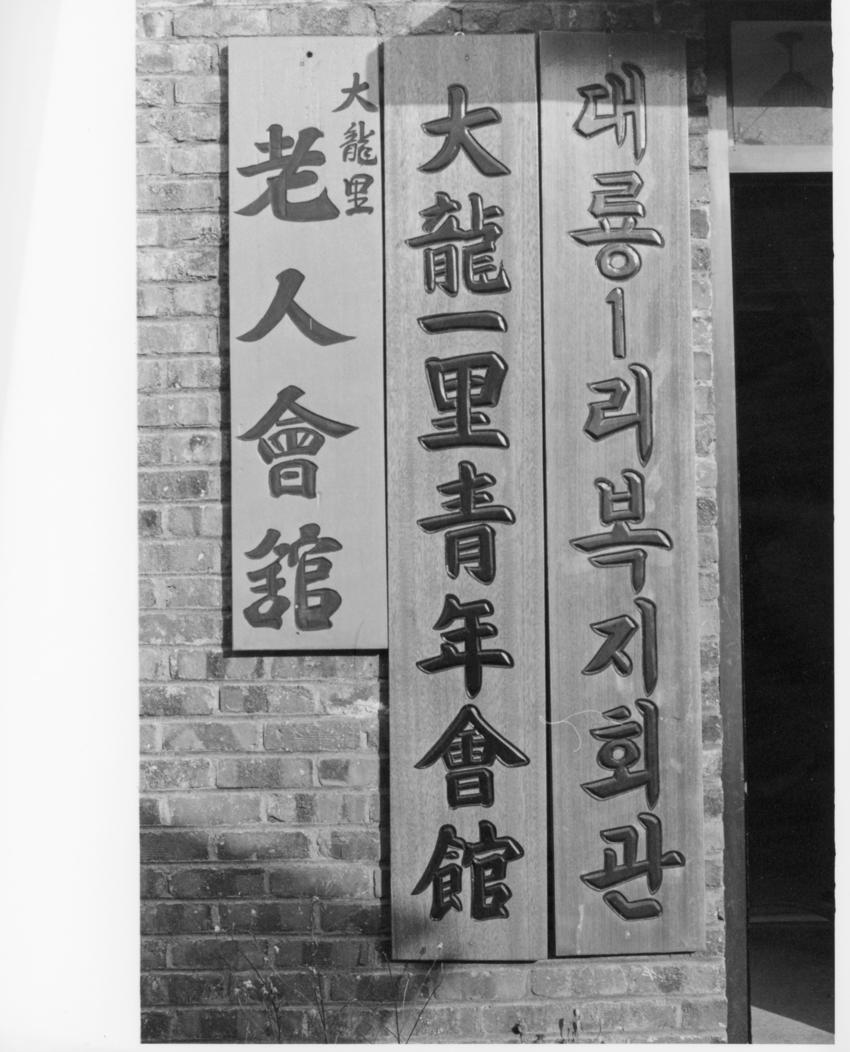 대룡1리복지회관
大龍一里青年會館
大龍里
老人會舘